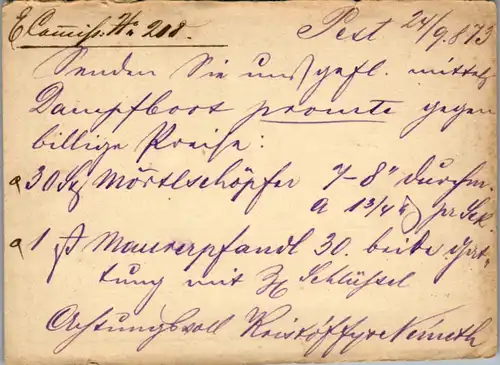 E Comiss. Nr 208.
Pest 24/9.873
Senden Sie uns gefl. mittels
Dampfboot promte gegen
billige Preise:
30 Stk Mörtlschöpfer 7-8" Durchm
a 1 3/4 pr Stk.
1 Maurerpfandl 30. beide Gat-
tung mit Schlüssel
Achtungsvoll Kristóffy & Németh